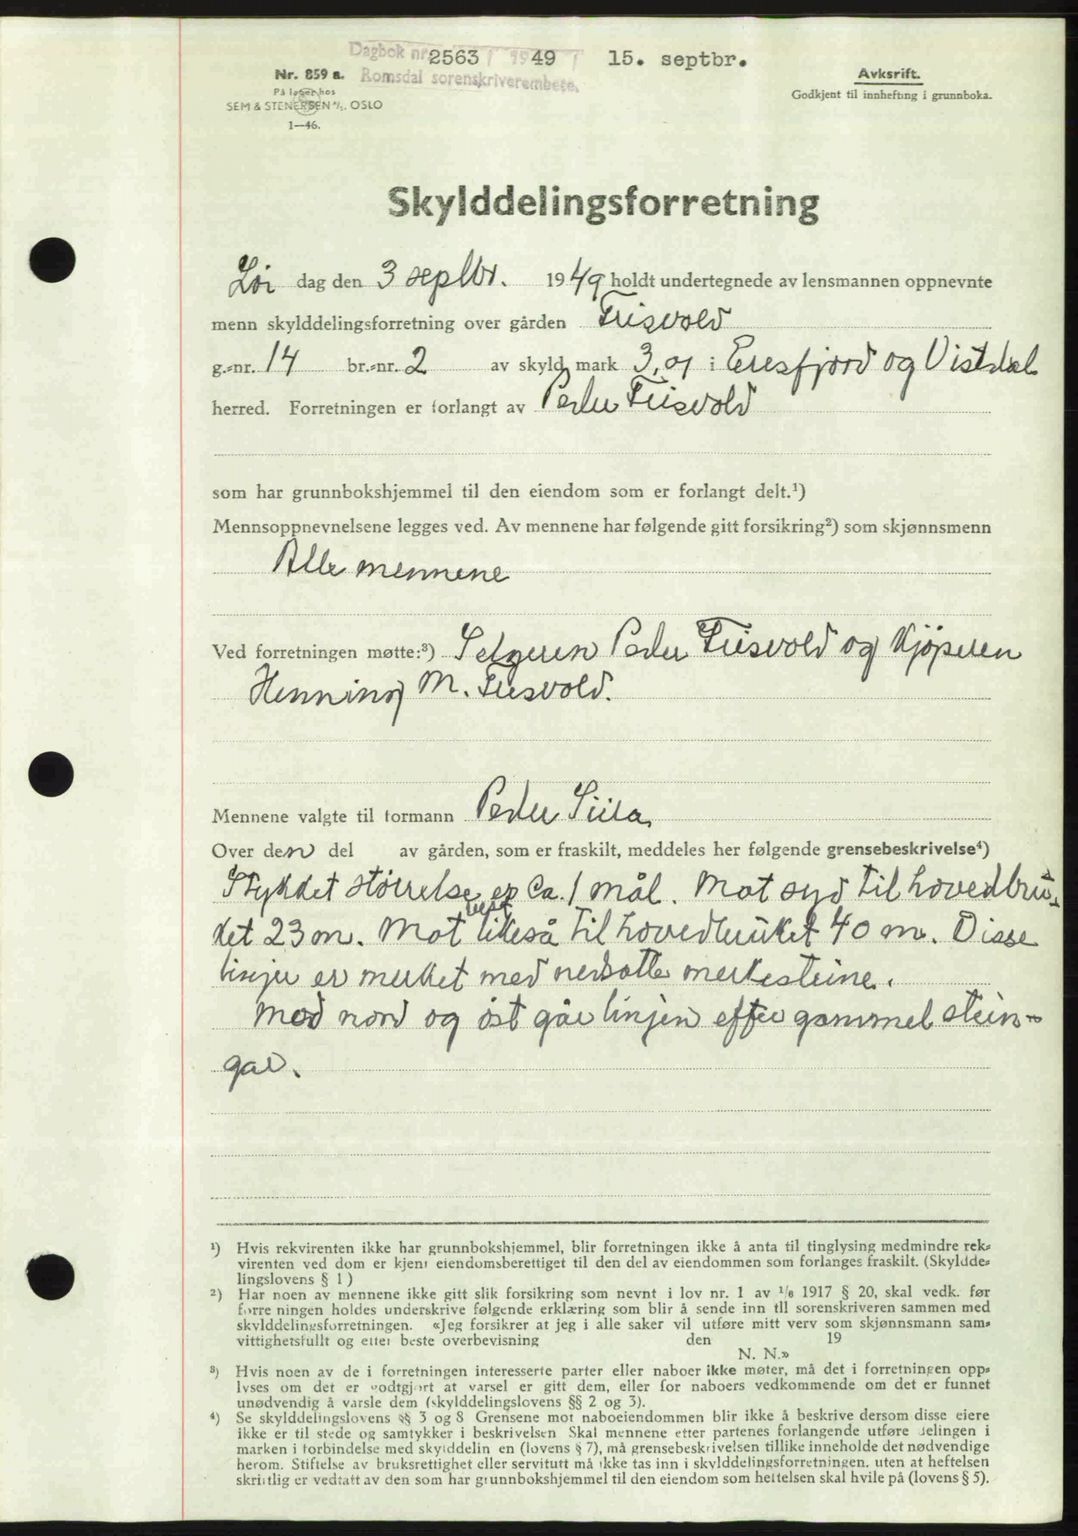 Dagbok nr. 2563 / 1949 / 15. septbr.
Romsdal sorenskriverembete.
Nr. 859 a.
På lager hos
SEM & STENERSEN A/S. OSLO
1—46.
Avskrift.
Godkjent til innhefting i grunnboka.
Skylddelingsforretning
Lør dag den 3 septbr. 1949 holdt undertegnede av lensmannen oppnevnte
menn skylddelingsforretning over gården Frisvold
g.-nr. 14 br.-nr. 2 av skyld mark 3,01 i Eresfjord og Vistdal
herred. Forretningen er forlangt av Peder Frisvold
som har grunnbokshjemmel til den eiendom som er forlangt delt.¹)
Mennsoppnevnelsene legges ved. Av mennene har følgende gitt forsikring²) som skjønnsmenn
Alle mennene
Ved forretningen møtte:³) Selgeren Peder Frisvold og Kjøperen
Henning M. Frisvold.
Mennene valgte til formann Peder Siira
Over den del av gården, som er fraskilt, meddeles her følgende grensebeskrivelse⁴)
Stykket størrelse er Ca. 1 mål. Mot syd til hovedbru-
ket 23 m. Mot vest likeså til hovedbruket 40 m. Disse
linjer er merket med nedsatte merkesteine.
Mod nord og øst går linjen efter gammel stein-
gar.
¹) Hvis rekvirenten ikke har grunnbokshjemmel, blir forretningen ikke å anta til tinglysing medmindre rek-
virenten ved dom er kjent eiendomsberettiget til den del av eiendommen som forlanges fraskilt. (Skyldde-
lingslovens § 1)
²) Har noen av mennene ikke gitt slik forsikring som nevnt i lov nr. 1 av 1/6 1917 § 20, skal vedk. før
forretningen holdes underskrive følgende erklæring som blir å sende inn til sorenskriveren sammen med
skylddelingsforretningen. «Jeg forsikrer at jeg i alle saker vil utføre mitt verv som skjønnsmann sam-
vittighetsfullt og etter beste overbevisning den 19
N. N.»
³) Hvis noen av de i forretningen interesserte parter eller naboer ikke møter, må det i forretningen opp-
lyses om det er godtgjort at varsel er gitt dem, eller for naboers vedkommende om det er funnet
unødvendig å varsle dem (skylddelingslovens §§ 2 og 3).
⁴) Se skylddelingslovens §§ 3 og 8 Grensene mot naboeiendommen blir ikke å beskrive dersom disse eiere
ikke er til stede og samtykker i beskrivelsen Skal mennene etter partenes forlangende utføre delingen i
marken i forbindelse med skylddelingen (lovens § 7), må grensebeskrivelsen tillike inneholde det nødvendige
herom. Stiftelse av bruksrettighet eller servitutt må ikke tas inn i skylddelingsforretningen. uten at heftelsen
skriftlig er vedtatt av den som har grunnbokshjemmel til den eiendom som heftelsen skal hvile på (lovens § 5).